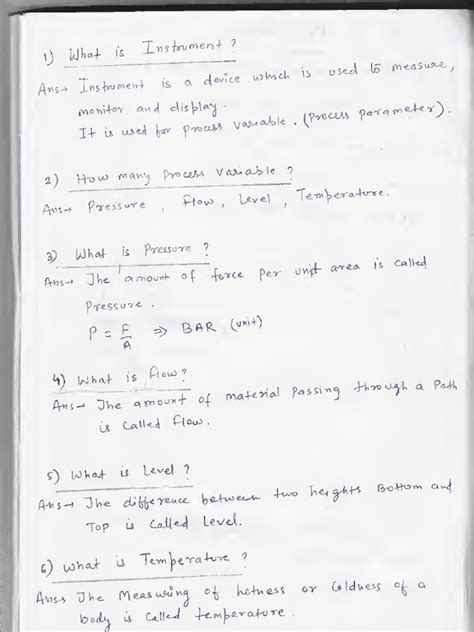 1) What is Instrument ?
Ans→ Instrument is a device which is used to measure,
monitor and display.
It is used for process variable. (process parameter).
2) How many process variable ?
Ans→ Pressure, flow, Level, Temperature.
3) What is Pressure ?
Ans→ The amount of force per unit area is called
Pressure.
P = F/A ⇒ BAR (unit)
4) What is flow ?
Ans→ The amount of material passing through a Path
is called flow.
5) What is Level ?
Ans→ The difference between two heights Bottom and
Top is called Level.
6) What is Temperature ?
Ans→ The Measuring of hotness or Coldness of a
body is called temperature.